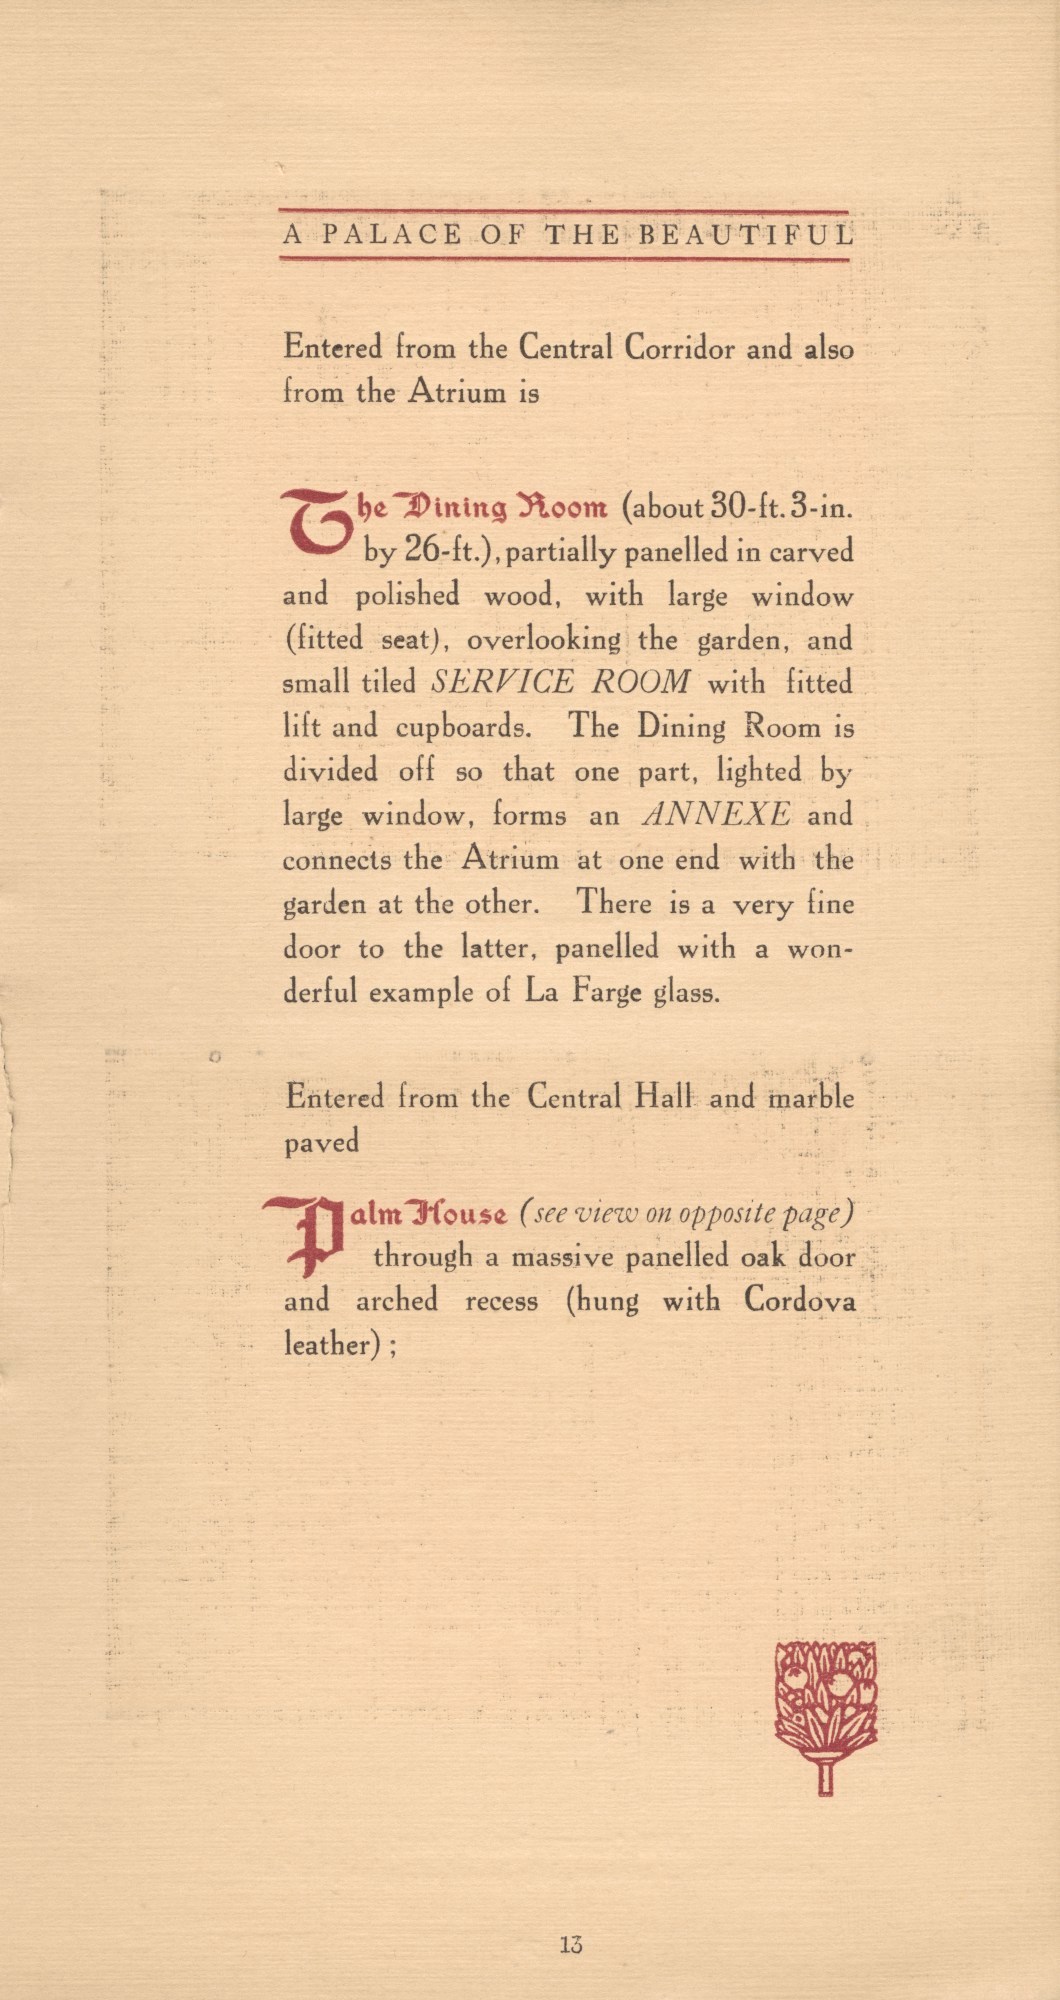 A PALACE OF THE BEAUTIFUL
Entered from the Central Corridor and also
from the Atrium is
The Dining Room (about 30-ft. 3-in.
by 26-ft.), partially panelled in carved
and polished wood, with large window
(fitted seat), overlooking the garden, and
small tiled SERVICE ROOM with fitted
lift and cupboards. The Dining Room is
divided off so that one part, lighted by
large window, forms an ANNEXE and
connects the Atrium at one end with the
garden at the other. There is a very fine
door to the latter, panelled with a won-
derful example of La Farge glass.
Entered from the Central Hall and marble
paved
Palm House (see view on opposite page)
through a massive panelled oak door
and arched recess (hung with Cordova
leather) ;
13